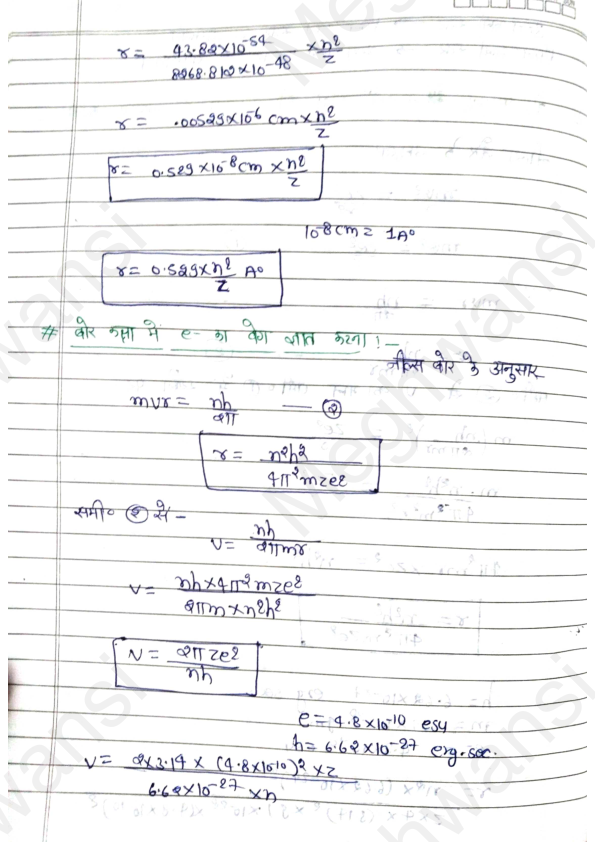 r = 43.82×10⁻⁵⁴ / 8268.812×10⁻⁴⁸ × n²/z
r = .00529×10⁻⁶ cm × n²/z
r = 0.529×10⁻⁸ cm × n²/z
10⁻⁸ cm = 1A°
r = 0.529 × n²/z A°
# बोर कक्षा में e- का वेग ज्ञात करना :-
नील्स बोर के अनुसार
mvr = nh/2π — ②
r = n²h² / 4π²mze²
समी० ② से -
v = nh / 2πmr
v = nh × 4π²mze² / 2πm × n²h²
v = 2πze² / nh
e = 4.8×10⁻¹⁰ esu
h = 6.62×10⁻²⁷ erg.sec.
v = 2×3.14 × (4.8×10⁻¹⁰)² × z / 6.62×10⁻²⁷ × n
Meghwansi